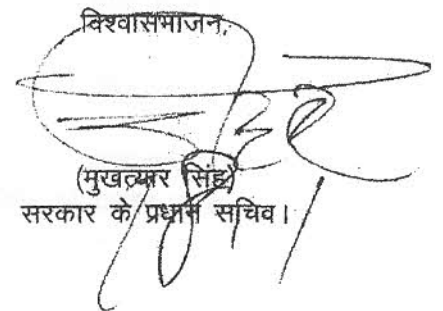 विश्वासभाजन,
(मुखत्यार सिंह)
सरकार के प्रधान सचिव।